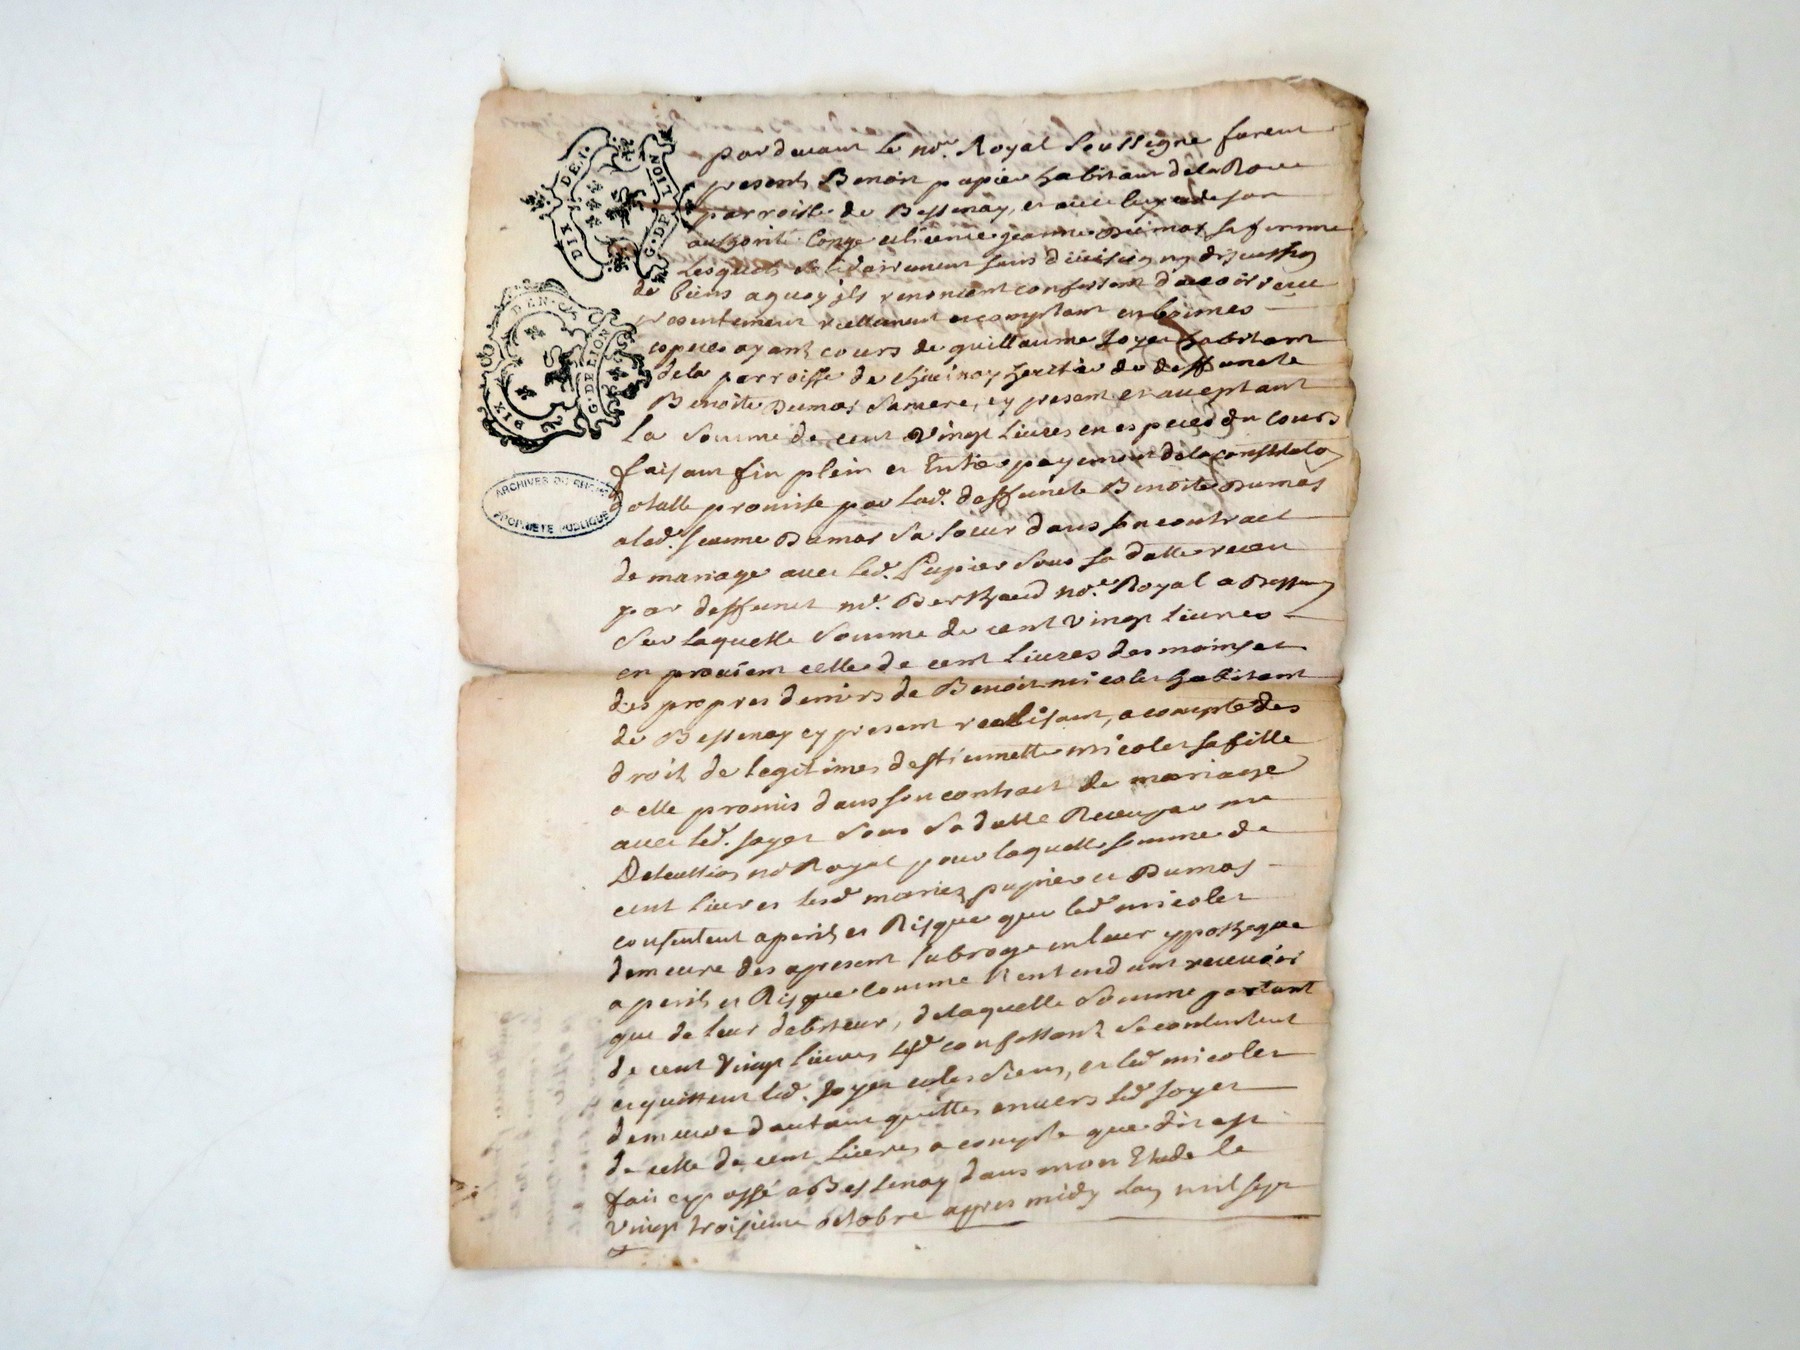 DIX DEN.
G. DE LION
DIX DEN.
G. DE LION
ARCHIVES DU RHONE
PROPRIETE PUBLIQUE
par devant le no.re Royal soussigne furent
presents Benoit papier habitant de la Roue
parroisse de Bessenay, et avec luy de son
authorité conge et licence jeanne Dumas sa femme
Lesquels solidairement sans division ny discussion
de biens a quoy ils renoncent confessent davoir receu
presentement reellement et comptant en bonnes
especes ayant cours de guillaume Joyet habitant
de la parroisse de heritier de deffuncte
Benoite Dumas sa mere, cy present et acceptant
La somme de cent vingt Livres en especes du cours
faisant fin plein et Entier payement de la constitu͠o
dotalle promise par lad. deffuncte Benoite Dumas
a lad. Jeanne Dumas sa soeur dans son contract
de mariage avec led. Papier sous sa datte receu
par deffunct m.e Berthaud no.re Royal a Bessenay
Sur laquelle somme de cent vingt livres
en provient celle de cent livres des mains et
des propres deniers de Benoit nicolet habitant
de Bessenay cy present , a compte des
droits de legitimes destiennette nicolet sa fille
a elle promis dans son contract de mariage
avec led. Joyet sous sa datte Receu par me
no.re Royal pour laquelle somme de
cent livres lesd mariez papier et Dumas
consentent a perils et Risque que led nicolet
demeure des apresent subroge en leur yppotheque
a perils et Risque comme Nentendant recevoir
que de leur debiteur, de laquelle somme partant
de cent vingt livres lesd confessants se contentent
et quittent led. Joyet et les siens, et led nicolet
demeure dautant quitte envers led Joyet
de celle de cent livres a compte que dit est
fait et passé a Bessenay dans mon Etude le
vingt troisieme octobre apres midy lan mil sept